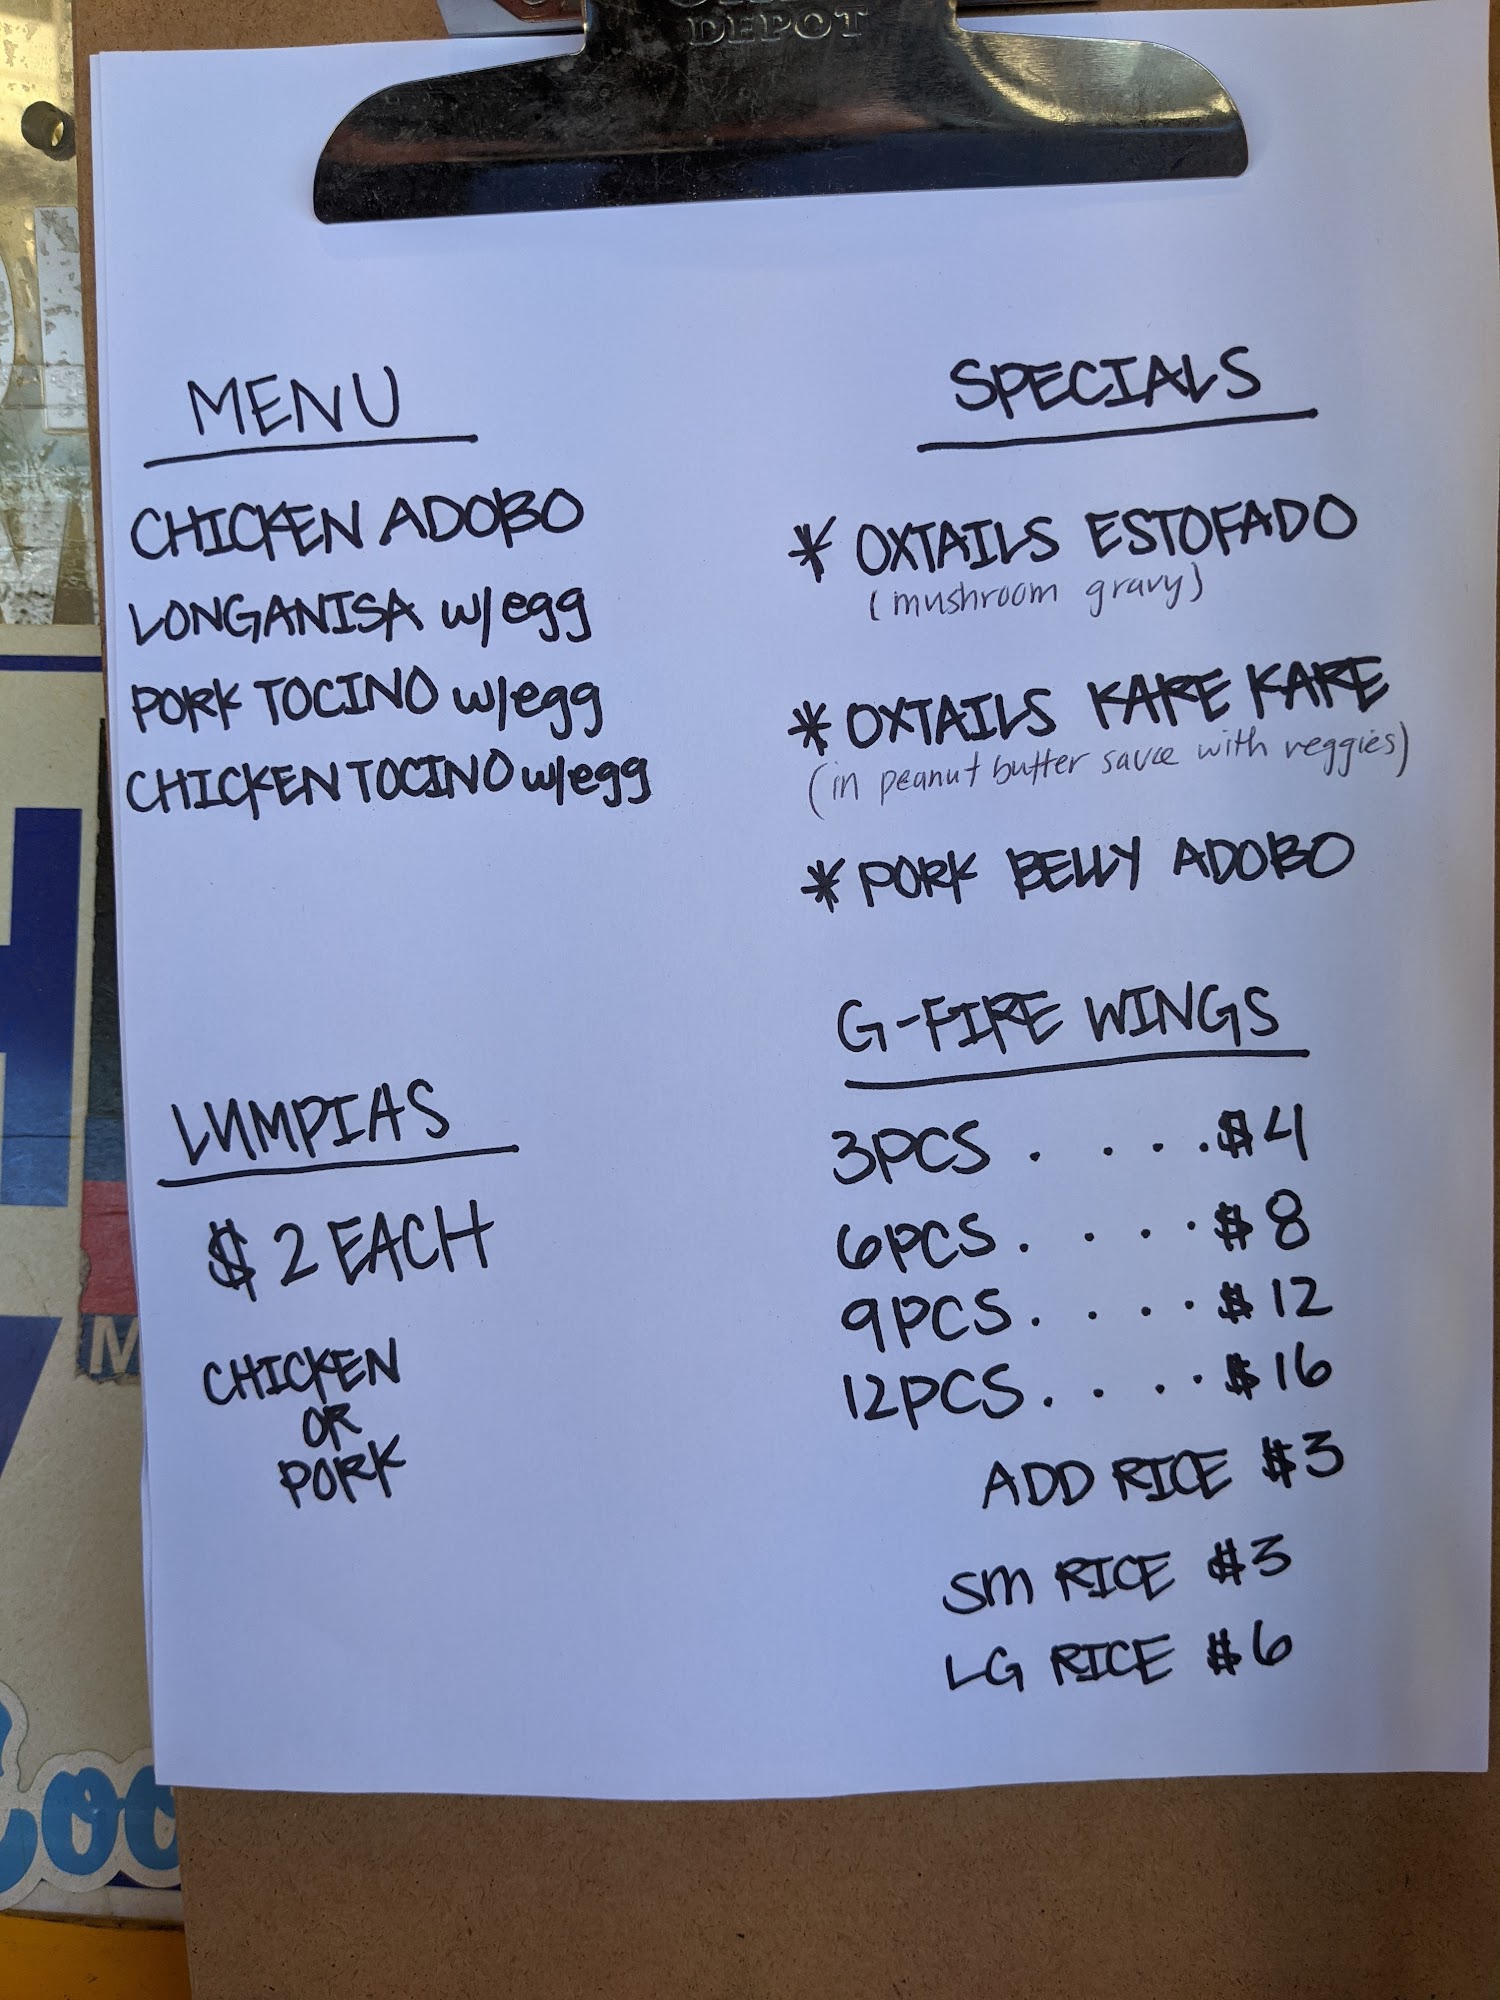 DEPOT
MENU
CHICKEN ADOBO
LONGANISA w/egg
PORK TOCINO w/egg
CHICKEN TOCINO w/egg
LUMPIAS
$2 EACH
CHICKEN
OR
PORK
SPECIALS
* OXTAILS ESTOFADO
(mushroom gravy)
* OXTAILS KARE KARE
(in peanut butter sauce with veggies)
* PORK BELLY ADOBO
G-FIRE WINGS
3PCS . . . . $4
6PCS . . . . $8
9PCS . . . . $12
12PCS . . . . $16
ADD RICE $3
SM RICE $3
LG RICE $6